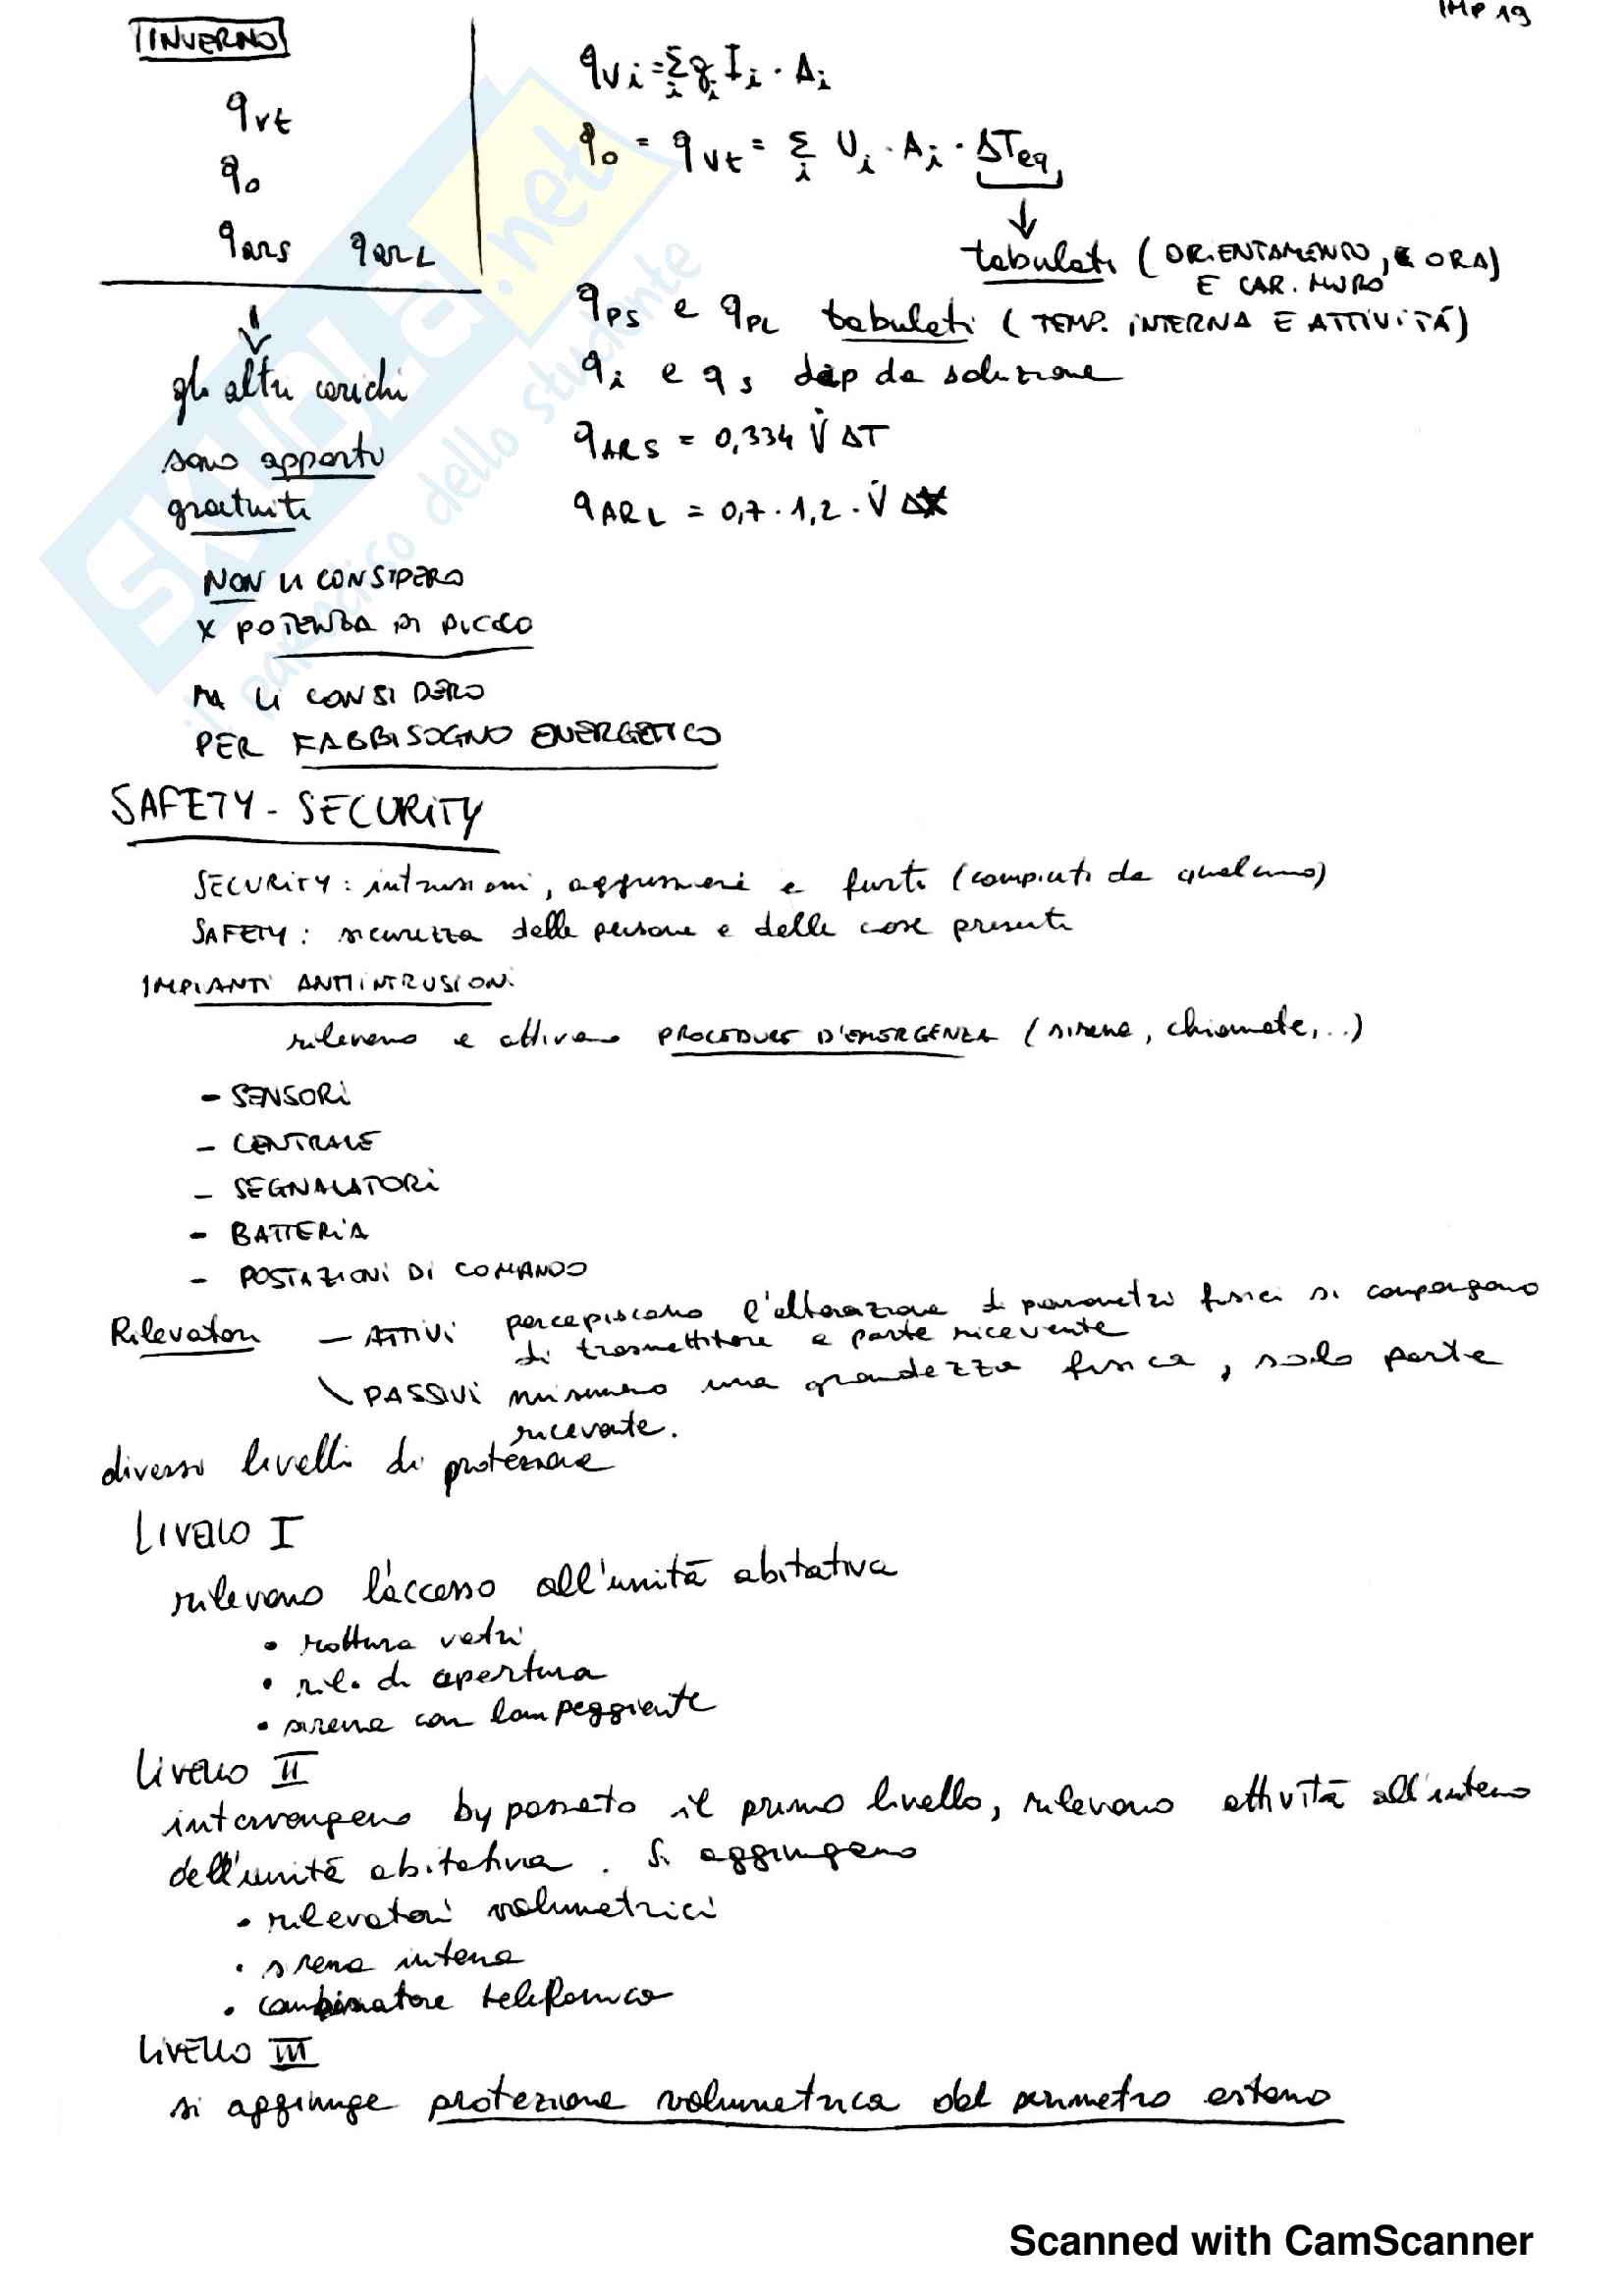 IMP 19
INVERNO
q_vt
q_o
q_ARS q_ARL
gli altri carichi
sono apporti
gratuiti
NON LI CONSIDERO
X POTENZA DI PICCO
MA LI CONSIDERO
PER FABBISOGNO ENERGETICO
q_vi = Σ_i g_i I_i · A_i
q_o = q_vt = Σ_i U_i · A_i · ΔT_eq
↓
tabulati (ORIENTAMENTO, ORA)
E CAR. MURO
q_PS e q_PL tabulati (TEMP. INTERNA E ATTIVITÁ)
q_i e q_s dip da soluzione
q_ARS = 0,334 V̇ ΔT
q_ARL = 0,7 · 1,2 · V̇ ΔX
SAFETY - SECURITY
SECURITY: intrusioni, aggressioni e furti (compiuti da qualcuno)
SAFETY: sicurezza delle persone e delle cose presenti
IMPIANTI ANTIINTRUSIONI
rilevano e attivano PROCEDURE D'EMERGENZA (sirene, chiamate,..)
- SENSORI
- CENTRALE
- SEGNALATORI
- BATTERIA
- POSTAZIONI DI COMANDO
Rilevatori — ATTIVI percepiscono l'alterazione di parametri fisici si compongono
di trasmettitore e parte ricevente
\ PASSIVI misurano una grandezza fisica, solo parte
ricevente.
diversi livelli di protezione
LIVELLO I
rilevano l'accesso all'unità abitativa
• rottura vetri
• ril. di apertura
• sirena con lampeggiante
Livello II
intervengono bypassato il primo livello, rilevano attività all'interno
dell'unità abitativa. Si aggiungono
• rilevatori volumetrici
• sirena interna
• combinatore telefonico
LIVELLO III
si aggiunge protezione volumetrica del perimetro esterno
SKUOLA.net
il paradiso dello studente
Scanned with CamScanner